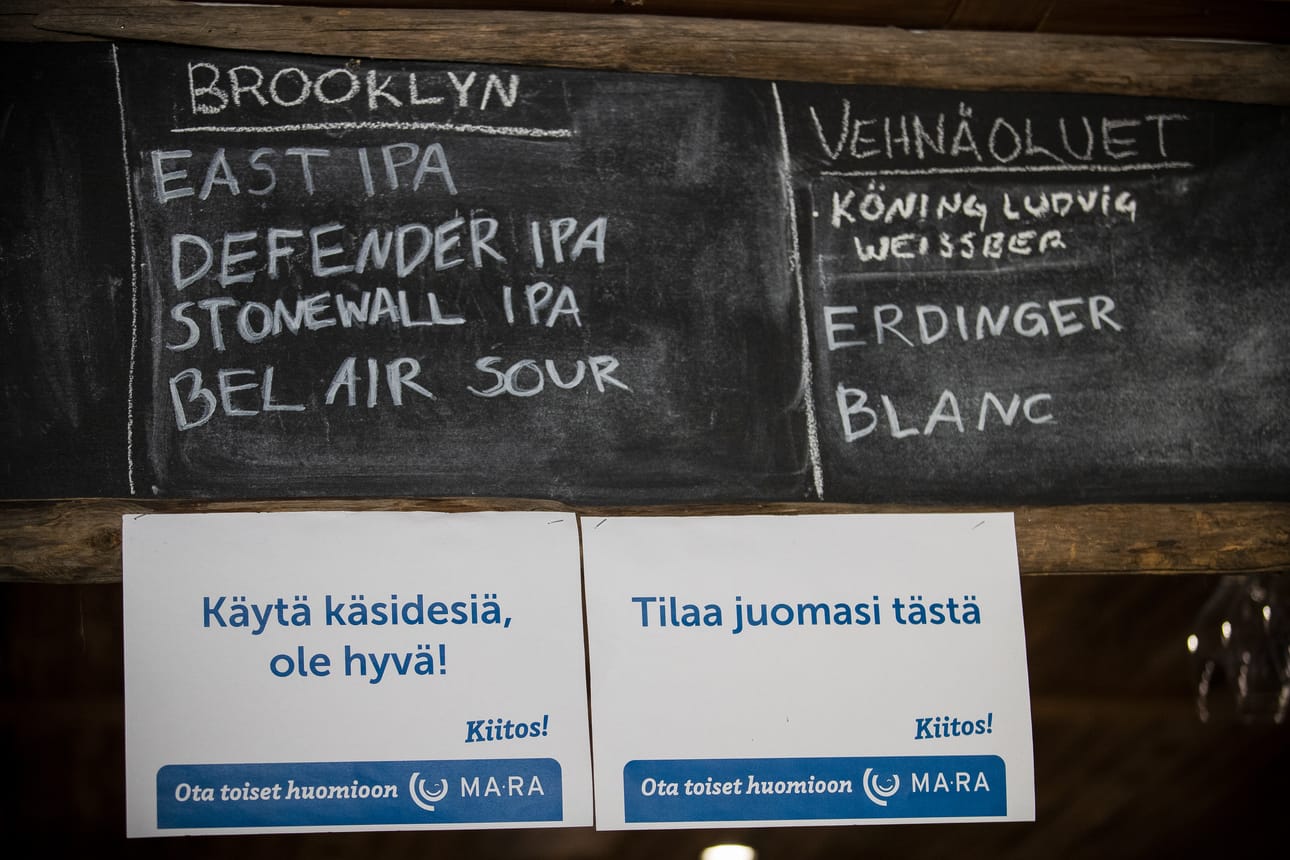 BROOKLYN
EAST IPA
DEFENDER IPA
STONEWALL IPA
BEL AIR SOUR
VEHNÄOLUET
KÖNING LUDVIG
WEISSBER
ERDINGER
BLANC
Käytä käsidesiä,
ole hyvä!
Kiitos!
Ota toiset huomioon MA·RA
Tilaa juomasi tästä
Kiitos!
Ota toiset huomioon MA·RA